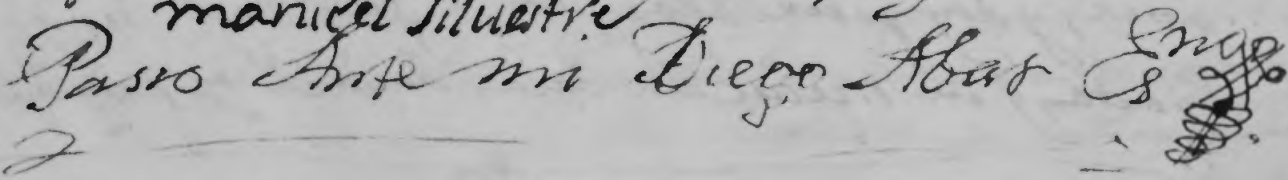 manuel siluestre
Passo Ante mi Diego Abar Es